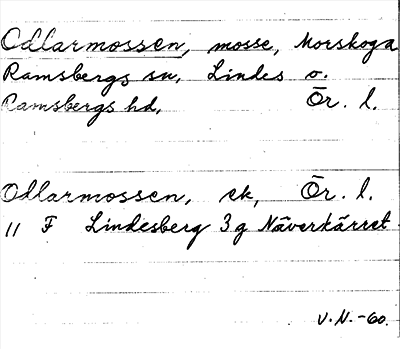 Odlarmossen, mosse, Morskoga
Ramsbergs sn, Lindes o.
Ramsbergs hd, Ör. l.
Odlarmossen, ek, Ör. l.
11 F Lindesberg 3 g Näverkärret
V.N.-60.